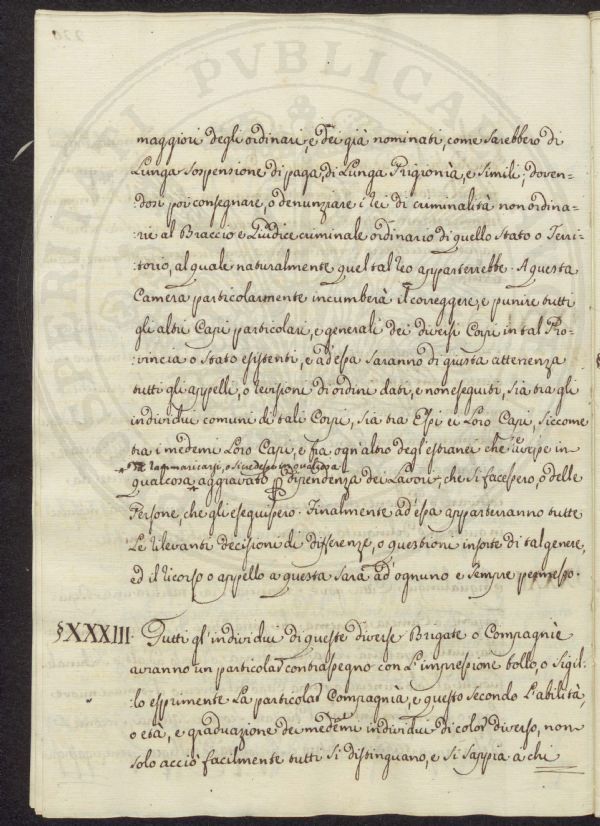 maggiori degli ordinari, e dei già nominati, come sarebbero di
Lunga sospensione di paga, di Lunga Prigionìa, e simili; doven-
:dosi poi consegnare, o denunziare i rei di criminalità non ordina-
:rie al Braccio e Giudice criminale ordinario di quello Stato o Terri-
:torio, al quale naturalmente quel tal reo apparterrebbe. A questa
Camera particolarmente incumberà il correggere, e punire tutti
gli altri Capi particolari, e generali dei diversi Corpi in tal Pro-
:vincia o Stato esistenti, e ad essa saranno di giusta attenenza
tutti gli appelli, o revisioni di ordini dati, e non eseguiti, sia tra gli
individui comuni di tali Corpi, sia tra Essi ei Loro Capi, siccome
tra i medemi Loro Capi, e fra ogn'altro degl'estranei che avesse in
di rammaricarsi, o si credesse in qualcosa
qualcosa aggravato p dipendenza dei Lavori, che si facessero, o delle
Persone, che gli eseguissero. Finalmente ad essa apparterranno tutte
Le rilevanti decisioni di differenze, o questioni insorte di tal genere,
ed il ricorso o appello a questa sarà ad ognuno e sempre permesso.
§XXXIII. Tutti gl'individui di queste diverse Brigate o Compagnìe
avranno un particolar contrassegno con L'impressione bollo, o Sigil-
:lo esprimente La particolar Compagnìa, e questo secondo L'abilità,
o età, e graduazione dei medemi individui di color diverso, non
solo acciò facilmente tutti si distinguano, e si sappia a chi
PVBLICAE